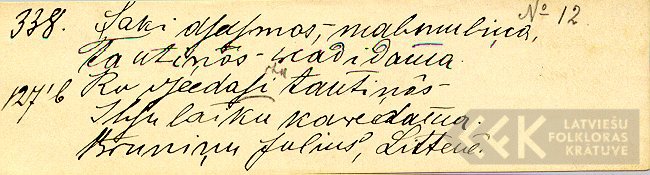 338. Saki dſeſmos, mahmuliņa, № 12
Tautiņôs wadidama.
127'b Ko dſeedaſi tautiņôs
Ilgu laiku kawedama.
Kruniņu Julius, Littenê.
LATVIEŠU
FOLKLORAS
KRĀTUVE